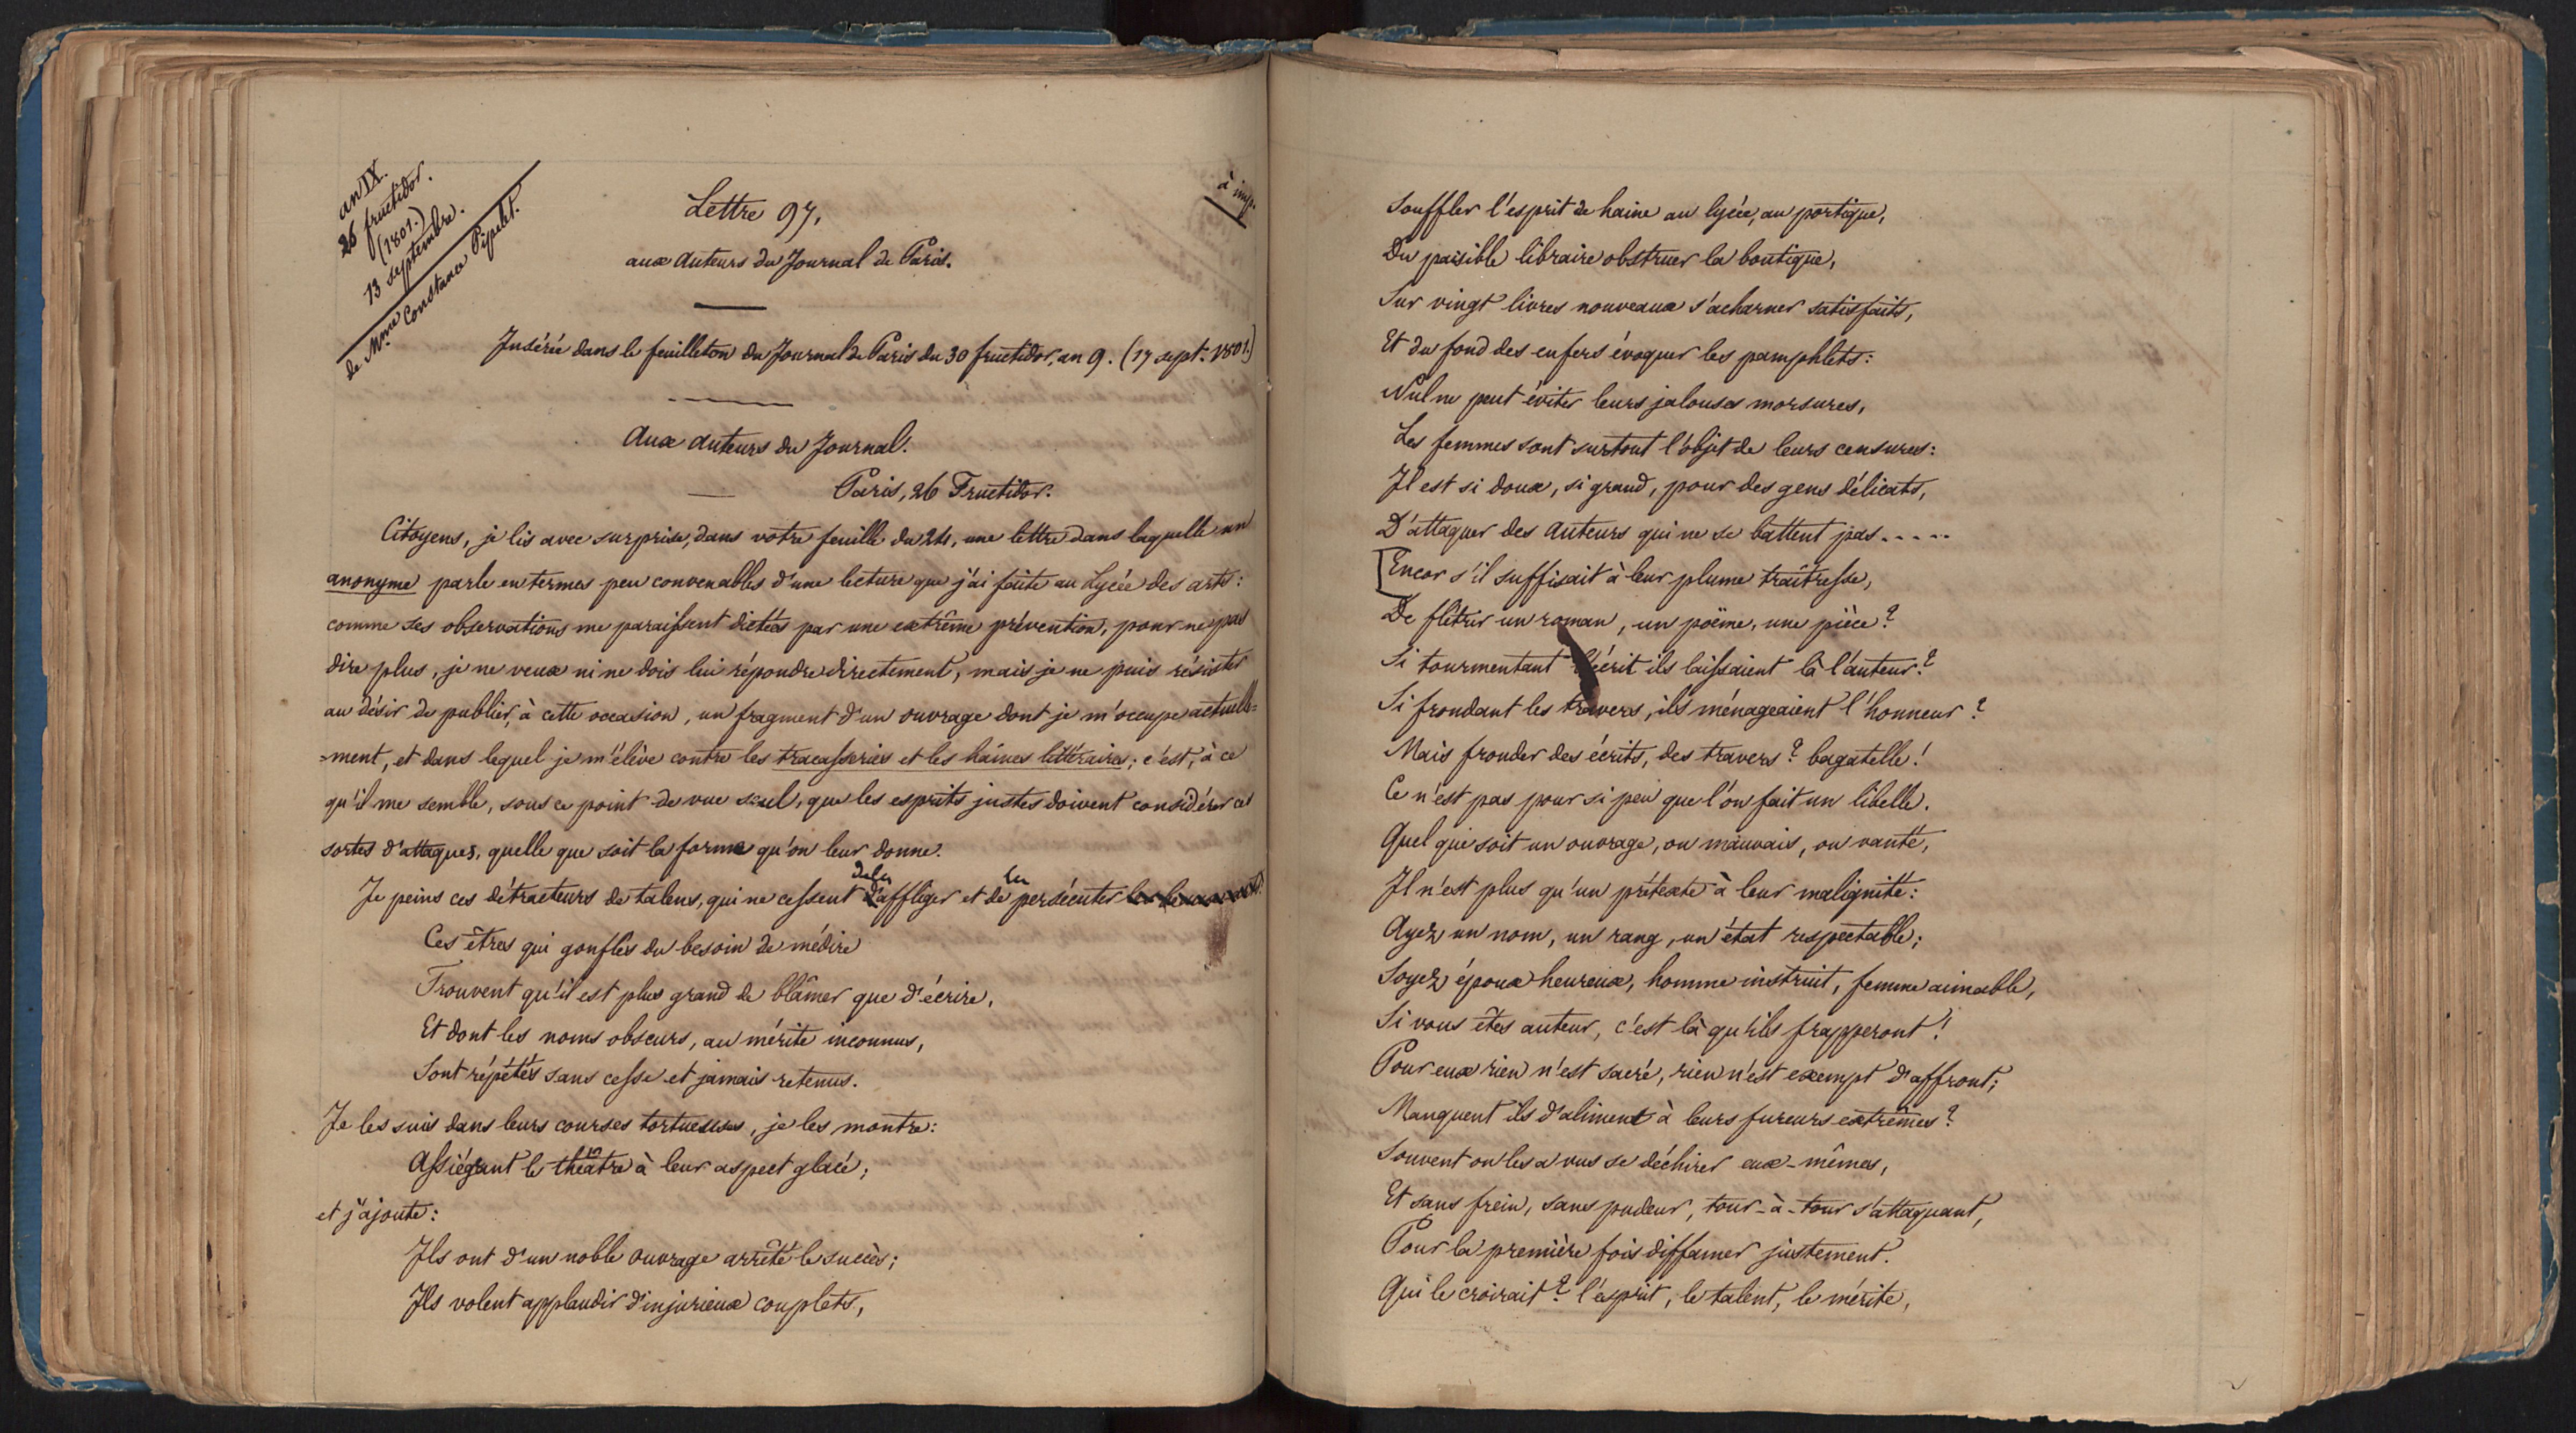 an IX.
26 fructidor.
(1801.)
13 septembre.
de Mme Constance Pipelet.
à imp.
Lettre 97,
aux auteurs du Journal de Paris.
Insérée dans le feuilleton du Journal de Paris du 30 fructidor, an 9. (17 sept. 1801.)
Aux auteurs du Journal.
Paris, 26 Fructidor.
Citoyens, je lis avec surprise, dans votre feuille du 24, une lettre dans laquelle un
anonyme parle en termes peu convenables d'une lecture que j'ai faite au Lycée des arts:
comme ses observations me paraissent dictées par une extrême prévention, pour ne pas
dire plus, je ne veux ni ne dois lui répondre directement, mais je ne puis résister
au désir de publier, à cette occasion, un fragment d'un ouvrage dont je m'occupe actuelle=
=ment, et dans lequel je m'élève contre les tracasseries et les haines littéraires; c'est, à ce
qu'il me semble, sous ce point de vue seul, que les esprits justes doivent considérer ces
sortes d'attaques, quelle que soit la forme qu'on leur donne.
Je peins ces détracteurs de talens, qui ne cessent de les affliger et de les persécuter
Ces êtres qui gonflés du besoin de médire
Trouvent qu'il est plus grand de blâmer que d'écrire,
Et dont les noms obscurs, au mérite inconnus,
Sont répétés sans cesse et jamais retenus.
Je les suis dans leurs courses tortueuses, je les montre:
Assiégeant le théâtre à leur aspect glacé;
et j'ajoute:
Ils ont d'un noble ouvrage arrêté le succès;
Ils volent applaudir d'injurieux couplets,
Souffler l'esprit de haine au lycée, au portique,
Du paisible libraire obstruer la boutique,
Sur vingt livres nouveaux s'acharner satisfaits,
Et du fond des enfers évoquer les pamphlets:
Nul ne peut éviter leurs jalouses morsures,
Les femmes sont surtout l'objet de leurs censures:
Il est si doux, si grand, pour des gens délicats,
D'attaquer des auteurs qui ne se battent pas.....
[Encor s'il suffisait à leur plume traîtresse,
De flétrir un roman, un poëme, une pièce?
Si tourmentant l'écrit ils laissaient là l'auteur?
Si frondant les travers, ils ménageaient l'honneur?
Mais fronder des écrits, des travers? bagatelle!
Ce n'est pas pour si peu que l'on fait un libelle.
Quel que soit un ouvrage, ou mauvais, ou vanté,
Il n'est plus qu'un prétexte à leur malignité:
Ayez un nom, un rang, un état respectable;
Soyez époux heureux, homme instruit, femme aimable,
Si vous êtes auteur, c'est là qu'ils frapperont!
Pour eux rien n'est sacré, rien n'est exempt d'affront;
Manquent ils d'aliment à leurs fureurs extrêmes?
Souvent on les a vus se déchirer eux-mêmes,
Et sans frein, sans pudeur, tour-à-tour s'attaquant,
Pour la première fois diffamer justement.
Qui le croirait? l'esprit, le talent, le mérite,